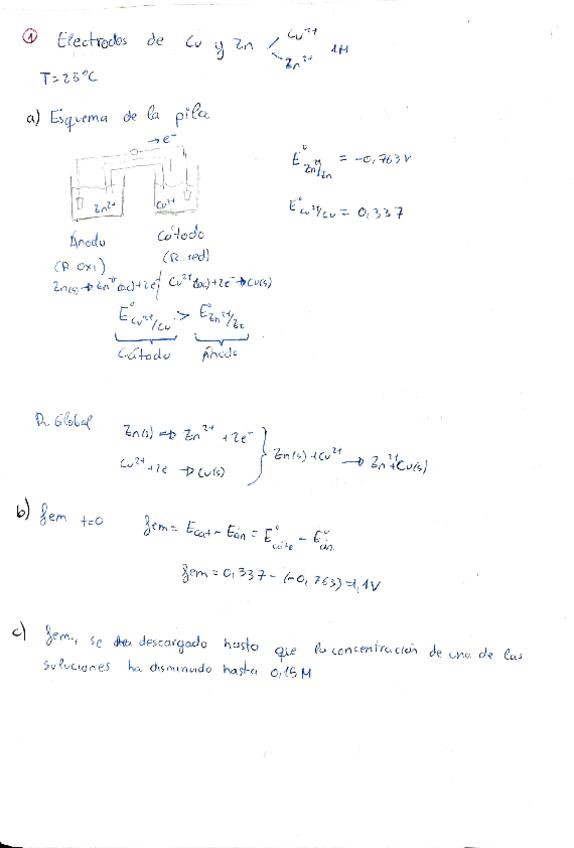 ① Electrodos de Cu y Zn Cu²⁺ Zn²⁺ 1M
T=25°C
a) Esquema de la pila
→e⁻
Zn²⁺ Cu²⁺
E° Zn²⁺/Zn = -0,763V
E° Cu²⁺/Cu = 0,337
Ánodo Cátodo
(R. oxi) (R. red)
Zn(s) → Zn²⁺(ac)+2e⁻ Cu²⁺(ac)+2e⁻ → Cu(s)
E° Cu²⁺/Cu > E° Zn²⁺/Zn
Cátodo Ánodo
R. Global Zn(s) → Zn²⁺ + 2e⁻
Cu²⁺+2e → Cu(s)
Zn(s)+Cu²⁺ → Zn²⁺+Cu(s)
b) fem t=0 fem = Ecat - Eán = E° - E°
fem = 0,337 - (-0,763) = 1,1V
c) fem, se descargado hasta que la concentración de una de las
soluciones ha disminuido hasta 0,15M